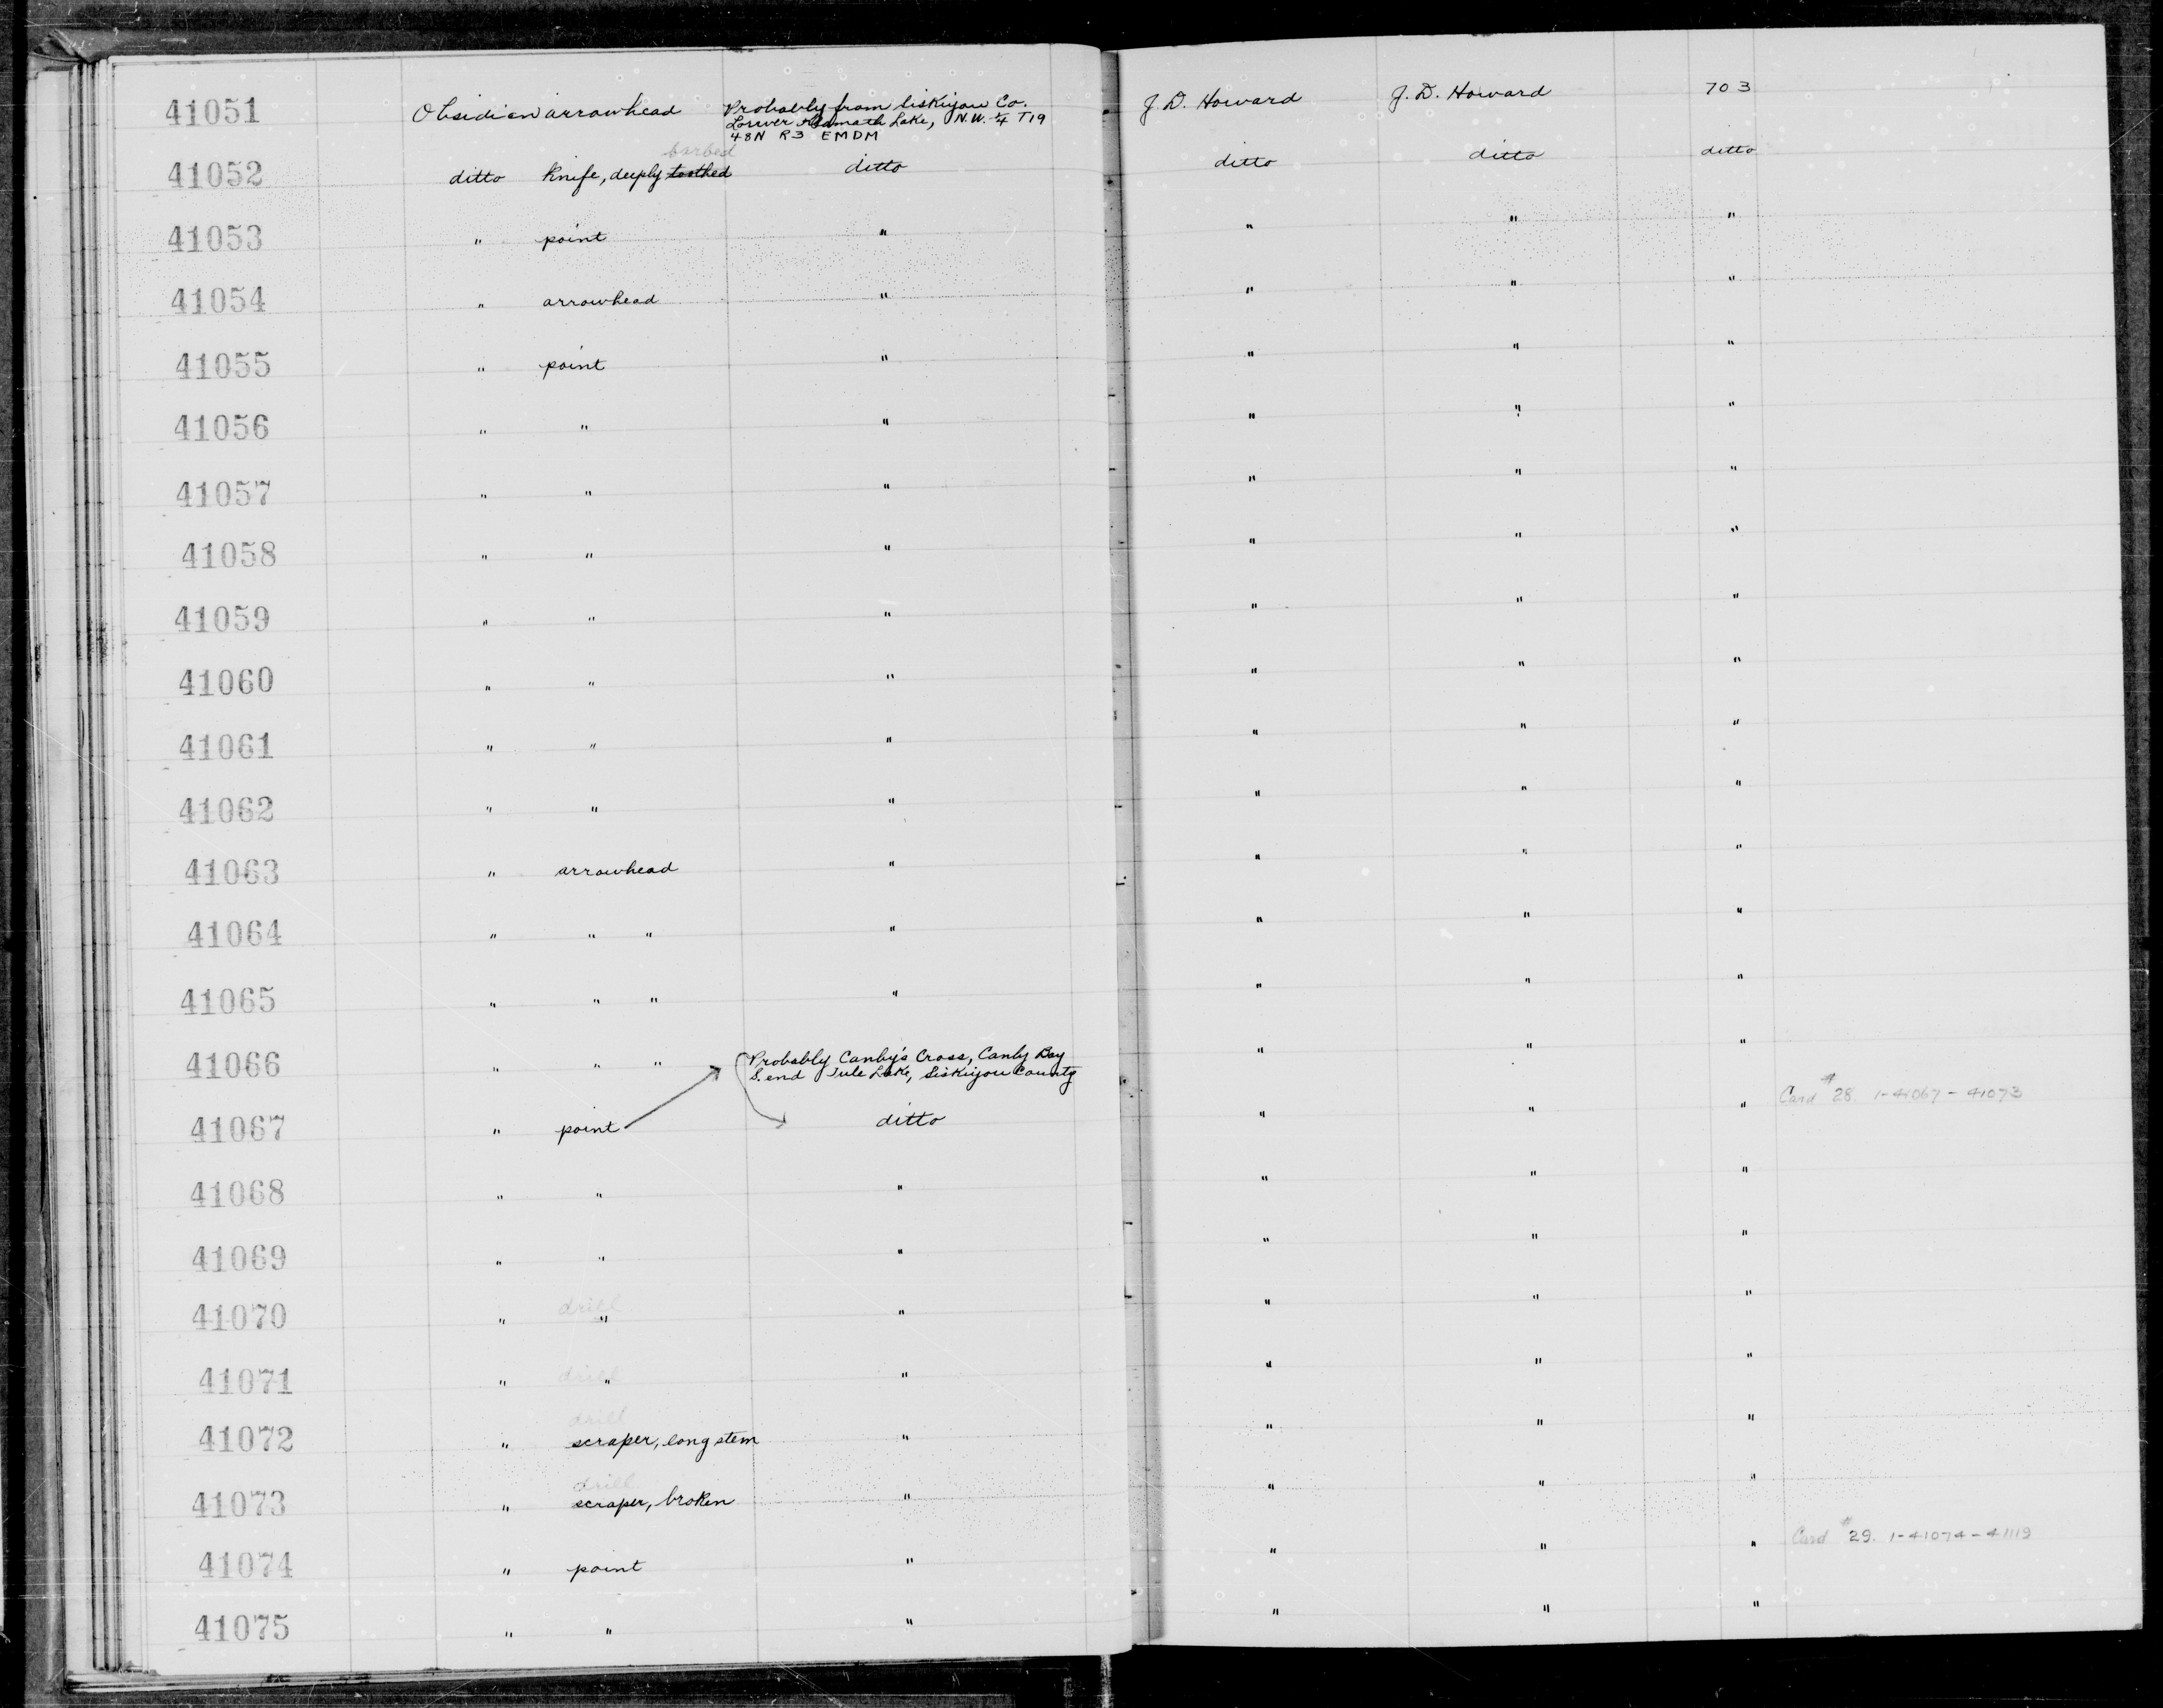 41051 Obsidian arrowhead Probably from Siskiyou Co. J. D. Howard J. D. Howard 703
Lower Klamath Lake, N.W. 1/4 T19
48N R3 EMDM
barbed
41052 ditto knife, deeply toothed ditto ditto ditto ditto
41053 " point " " " "
41054 " arrowhead " " " "
41055 " point " " " "
41056 " " " " " "
41057 " " " " " "
41058 " " " " " "
41059 " " " " " "
41060 " " " " " "
41061 " " " " " "
41062 " " " " " "
41063 " arrowhead " " " "
41064 " " " " " " "
41065 " " " " " " "
41066 " " " Probably Canby's Cross, Canby Bay " " "
S. end Tule Lake, Siskiyou County
41067 " point ditto " " " Card #28. 1-41067-41073
41068 " " " " " "
41069 " " " " " "
drill
41070 " " " " " "
41071 " drill " " " " "
drill
41072 " scraper, long stem " " " "
drill
41073 " scraper, broken " " " "
41074 " point " " " " Card #29. 1-41074-41119
41075 " " " " " "